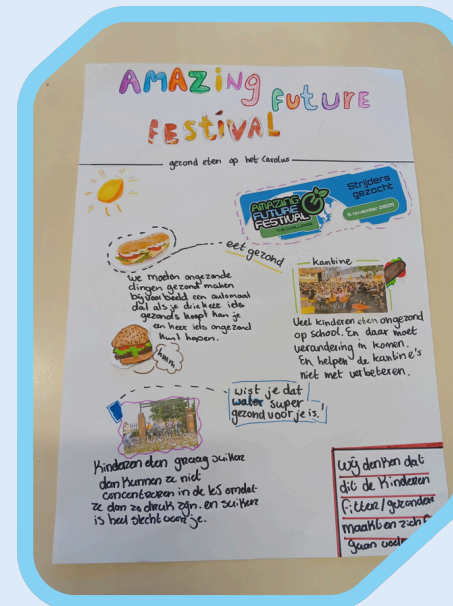 AMAZING
FUTURE
FESTIVAL
gezond eten op het Carolus
AMAZING
FUTURE
FESTIVAL
THE CHALLENGE
Strijders
gezocht
6 november 2025
eet gezond
we moeten ongezonde
dingen gezond maken
bijvoorbeeld een automaat
dat als je drie keer iets
gezonds koopt kan je
een keer iets ongezond
kunt kopen.
hmm
kantine
Veel kinderen eten ongezond
op school. En daar moet
verandering in komen.
En helpen de kantine's
niet met verbeteren.
wist je dat
water super
gezond voor je is!
Kinderen eten graag suiker
dan kunnen ze niet
concentreren in de les omdat
ze dan zo druk zijn. en suiker
is heel slecht voor je.
wij denken dat
dit de kinderen
fitter/gezonder
maakt en zich
gaan